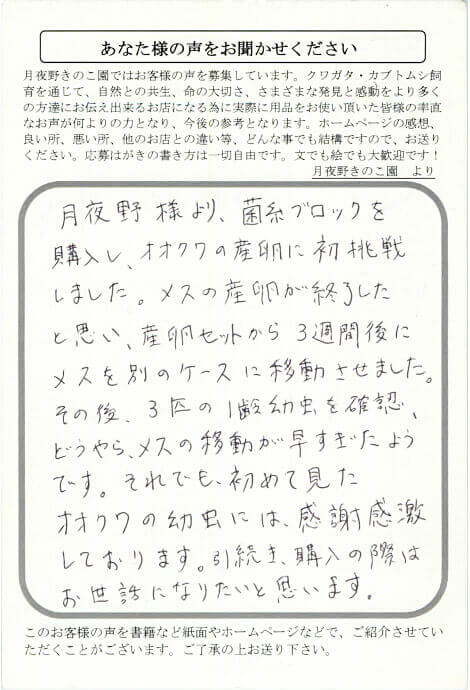 あなた様の声をお聞かせください
月夜野きのこ園ではお客様の声を募集しています。クワガタ・カブトムシ飼
育を通じて、自然との共生、命の大切さ、さまざまな発見と感動をより多く
の方達にお伝え出来るお店になる為に実際に用品をお使い頂いた皆様の率直
なお声が何よりの力となり、今後の参考となります。ホームページの感想、
良い所、悪い所、他のお店との違い等、どんな事でも結構ですので、お送り
ください。応募はがきの書き方は一切自由です。文でも絵でも大歓迎です！
月夜野きのこ園 より
月夜野様より、菌糸ブロックを
購入し、オオクワの産卵に初挑戦
しました。メスの産卵が終了した
と思い、産卵セットから3週間後に
メスを別のケースに移動させました。
その後、3匹の1齢幼虫を確認、
どうやら、メスの移動が早すぎたよう
です。それでも、初めて見た
オオクワの幼虫には、感謝感激
しております。引続き、購入の際は
お世話になりたいと思います。
このお客様の声を書籍など紙面やホームページなどで、ご紹介させてい
ただくことがございます。ご了承の上お送り下さい。